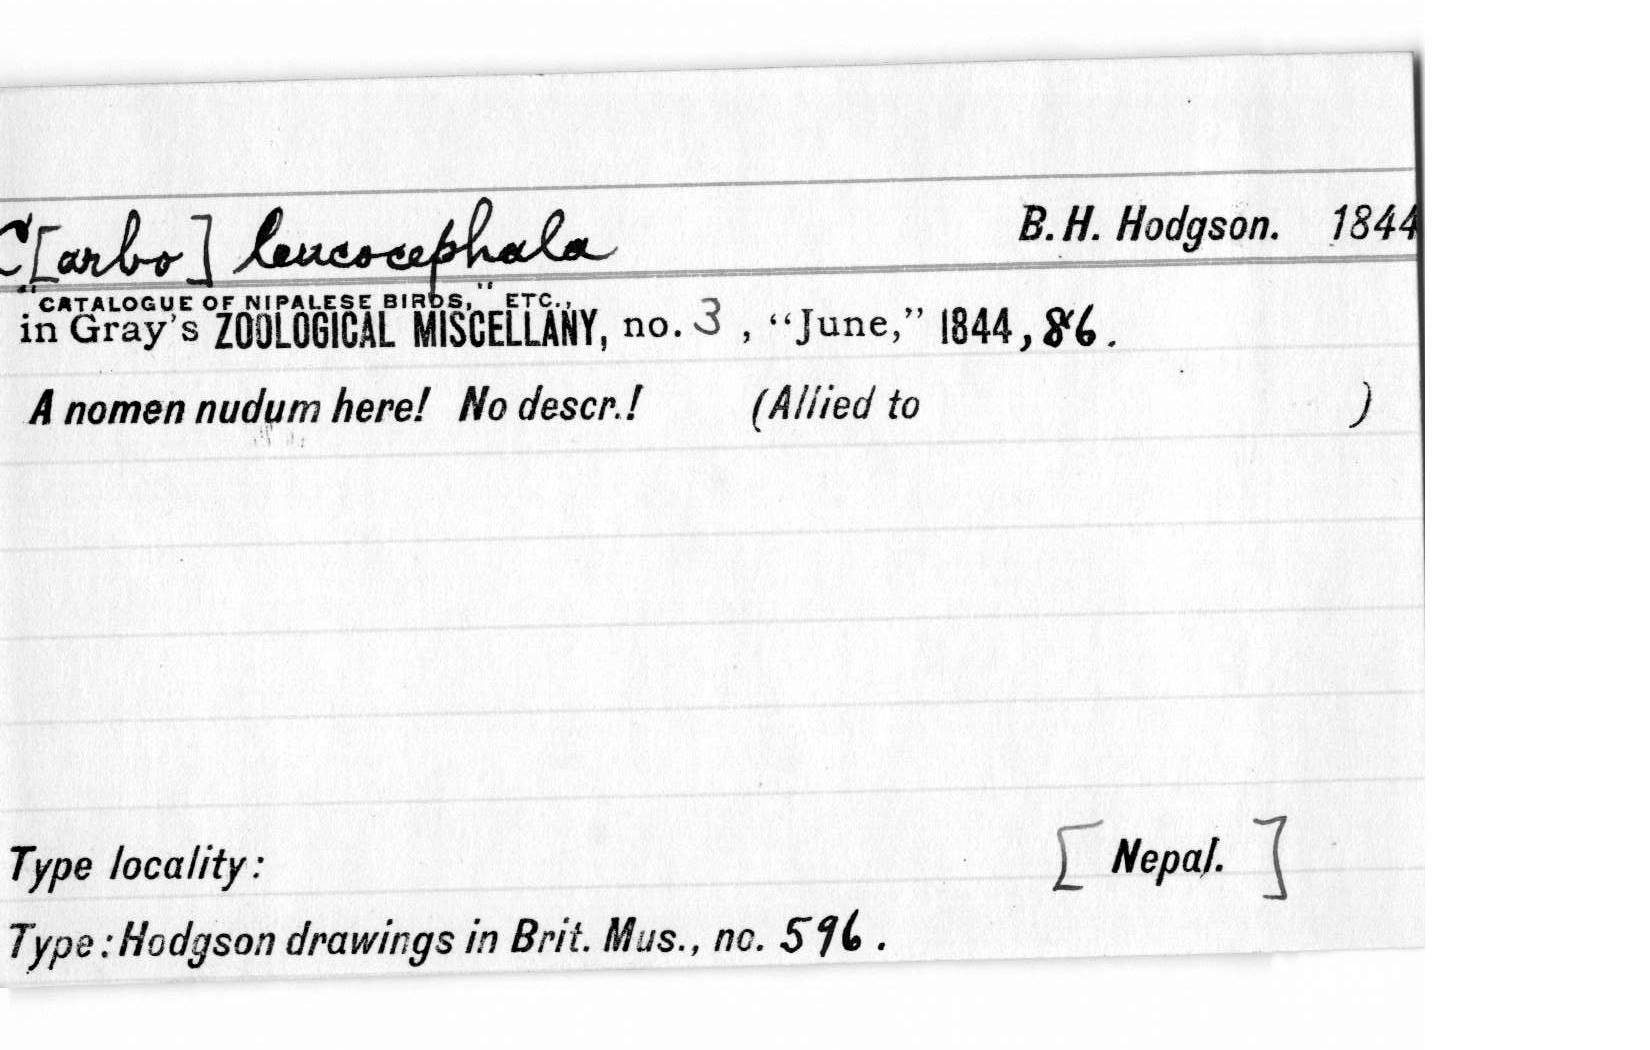 C[arbo] leucocephala B. H. Hodgson. 1844
"CATALOGUE OF NIPALESE BIRDS," ETC.,
in Gray's ZOOLOGICAL MISCELLANY, no. 3, "June," 1844, 86.
A nomen nudum here! No descr.! (Allied to )
Type locality: [Nepal.]
Type: Hodgson drawings in Brit. Mus., no. 596.